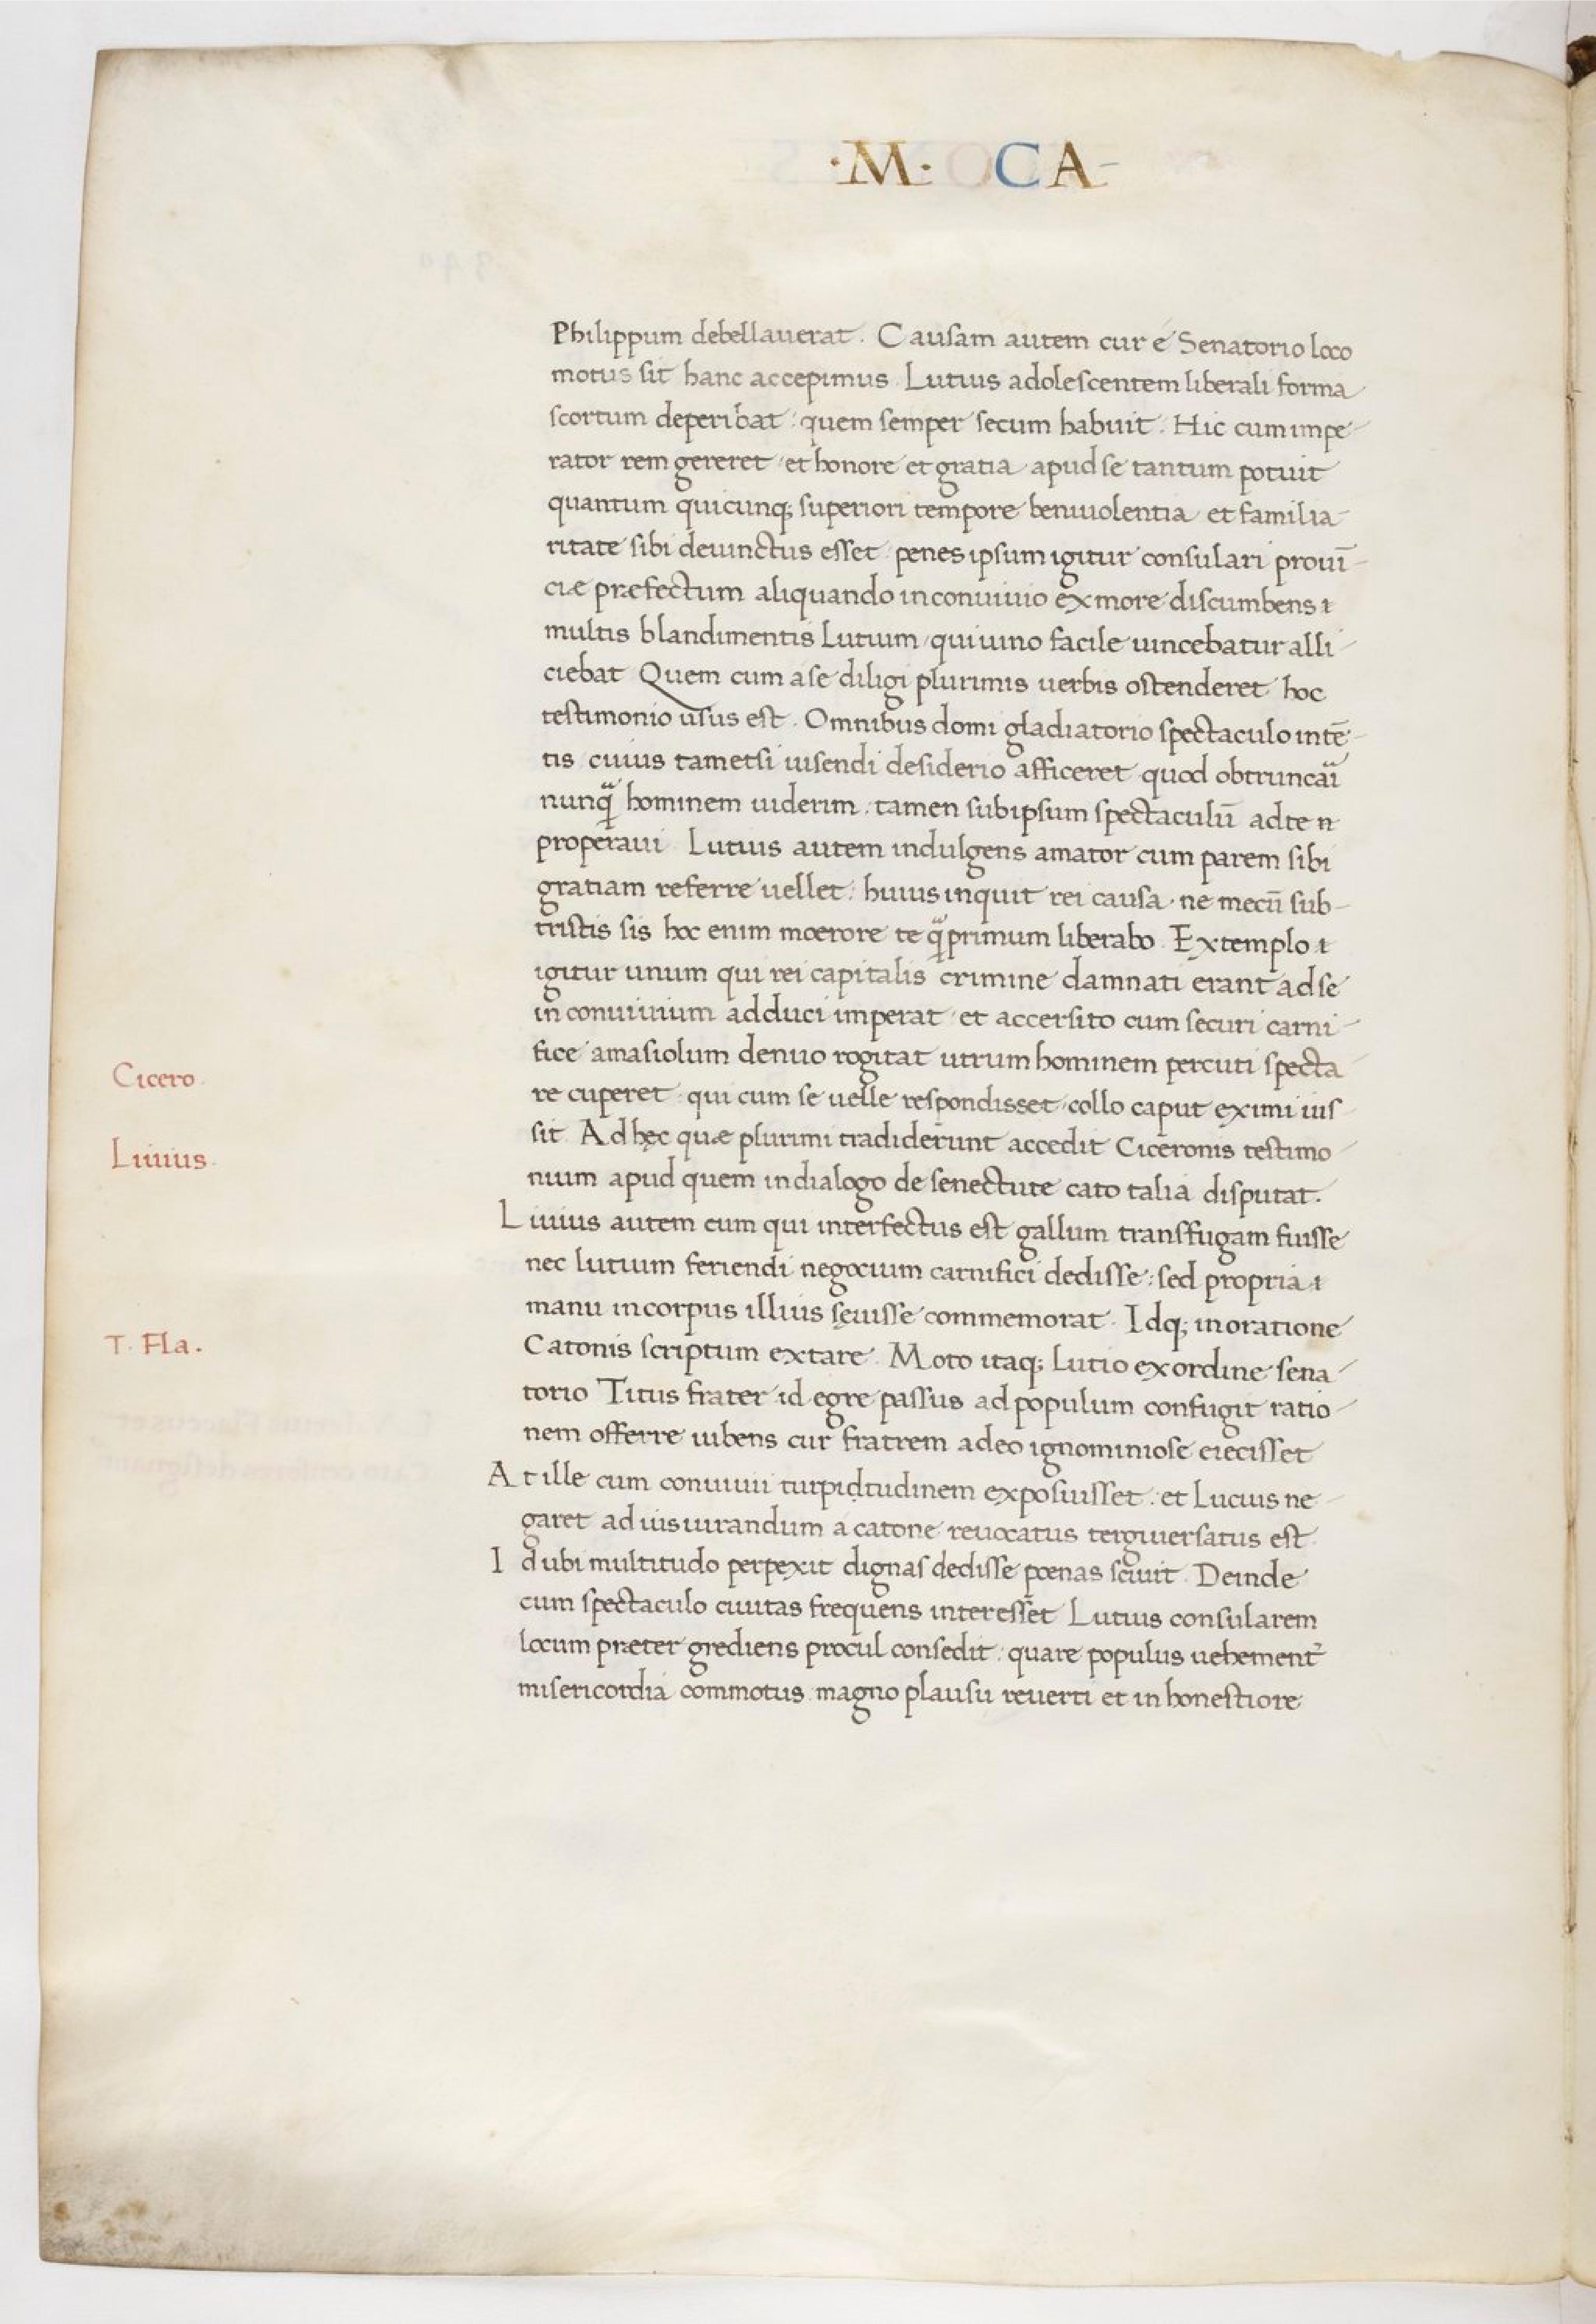 ·M· CA-
Philippum debellauerat. Causam autem cur é Senatorio loco
motus sit hanc accepimus. Lutius adolescentem liberali forma
scortum deperibat: quem semper secum habuit. Hic cum impe-
rator rem gereret et honore et gratia apud se tantum potuit
quantum quicunq; superiori tempore beniuolentia et familia-
ritate sibi deuinctus esset penes ipsum igitur consulari prouī-
ciæ præfectum aliquando in conuiuio ex more discumbens
multis blandimentis Lutium qui uino facile uincebatur alli-
ciebat Quem cum a se diligi plurimis uerbis ostenderet hoc
testimonio usus est. Omnibus domi gladiatorio spectaculo intē-
tis cuius tametsi uisendi desiderio afficeret quod obtruncari
nunq̃ hominem uiderim. tamen sub ipsum spectaculū ad te
properaui Lutius autem indulgens amator cum parem sibi
gratiam referre uellet: huius inquit rei causa ne mecū sub-
tristis sis hoc enim moerore te q̃primum liberabo. Extemplo
igitur unum qui rei capitalis crimine damnati erant ad se
in conuiuium adduci imperat et accersito cum securi carni-
fice amasiolum denuo rogitat utrum hominem percuti specta-
re cuperet qui cum se uelle respondisset collo caput eximi ius-
sit. Ad hęc quæ plurimi tradiderunt accedit Ciceronis testimo-
nium apud quem in dialogo de senectute cato talia disputat.
Liuius autem eum qui interfectus est gallum transfugam fuisse
nec lutium feriendi negocium carnifici dedisse: sed propria
manu in corpus illius sęuisse commemorat. Idq; in oratione
Catonis scriptum extare. Moto itaq; Lutio ex ordine sena-
torio Titus frater id egre passus ad populum confugit ratio-
nem offerre iubens cur fratrem adeo ignominiose eiecisset
At ille cum conuiuii turpidtudinem exposuisset: et Lucius ne-
garet ad iusiurandum a catone reuocatus tergiuersatus est.
Id ubi multitudo perpexit dignas dedisse poenas sciuit. Deinde
cum spectaculo ciuitas frequens interesset Lutius consularem
locum præter grediens procul consedit: quare populus uehement̃
misericordia commotus magno plausu reuerti et in honestiore
Cicero.
Liuius.
T. Fla.